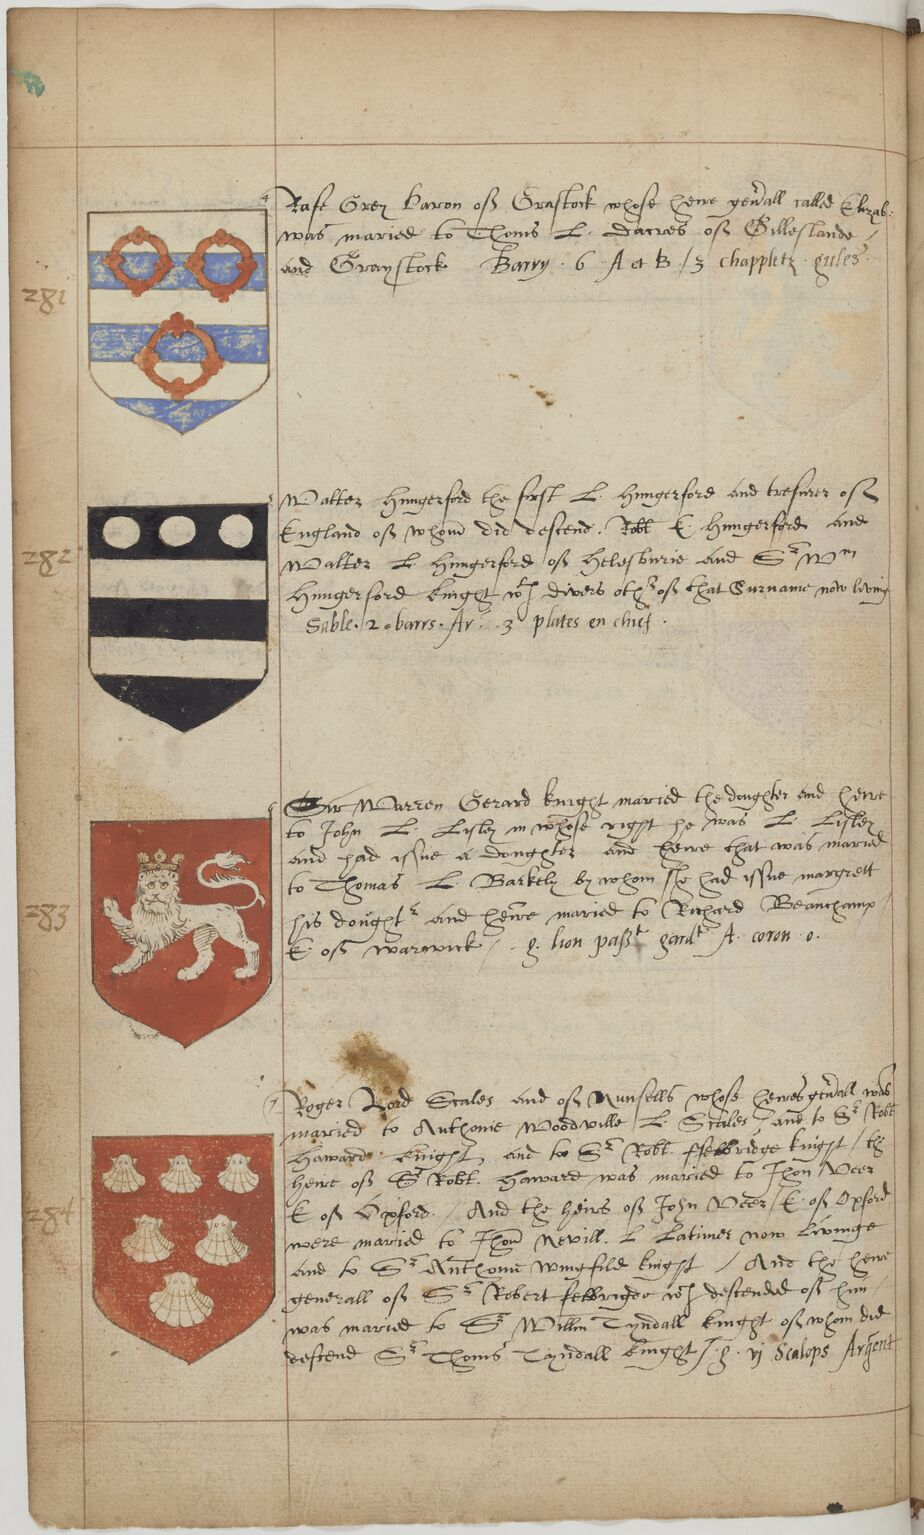 4
Rafe Grey Baron off Grastock whose heire gen'all called Elizab:
was maried to Thom's L. dacres off Gilleslande /
and Graystock Barry . 6 . A et B / 3 chappletz . gules .
281
5
Walter Hungerford the first L. Hungerford and tresurer off
England off whom did descend . Robt L. Hungerford and
282
Walter L. Hungerford off Helesburie and Sr Wm
Hungerford knight wch divers othr off that Surname now living
Sable . 2 . barrs . Ar . 3 plates en chief .
6
Sir Warren Gerard knight maried the doughter and heire
to John L. Lisley in whose right he was L. Lisley
and had issue a doughter and heire that was maried
to Thomas L. Barkely by whom she had issue margrett
283
his doughtr and heire maried to Richard Beauchamp /
E. off warwick / . g . lion passt gardt A . coron . o .
7
Roger Lord Scales and off Nunsells whose heires gen'all was
maried to Anthonie Woodville L. Scales and to Sr Robt
Haward knight, and to Sr Robt. ffelbridge knight / the
heire off Sr Robt. Haward was maried to Jhon Veer
284
E off Oxford . / And the heirs off John Veer / E . off Oxford
were maried to Jhon Nevill . L Latimer now Livinge
and to Sr Anthonie wingfild knight / And the heire
generall off Sr Robert felbrigde wch descended off him /
was maried to Sr Willm Tyndall knight off whom did
descend Sr Thom's Tyndall knight / . g . vj Scalops Argent